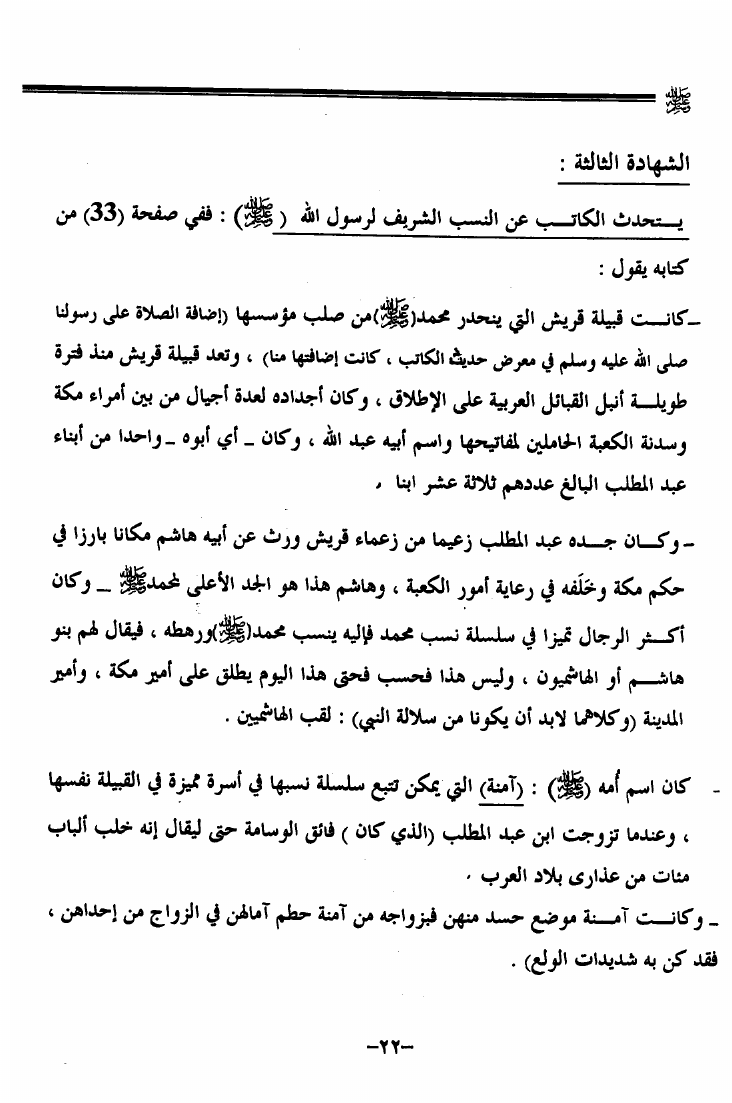 ﷺ
الشهادة الثالثة :
يـتحدث الكاتـب عن النسب الشريف لرسول الله ( ﷺ) : ففي صفحة (33) من
كتابه يقول :
ـ كانـت قبيلة قريش التي ينحدر محمد(ﷺ)من صلب مؤسسها (إضافة الصلاة على رسولنا
صلى الله عليه وسلم في معرض حديث الكاتب ، كانت إضافتها منا) ، وتعد قبيلة قريش منذ فترة
طويلـة أنبل القبائل العربية على الإطلاق ، وكان أجداده لعدة أجيال من بين أمراء مكة
وسدنة الكعبة الحاملين لمفاتيحها واسم أبيه عبد الله ، وكان ـ أي أبوه ـ واحدا من أبناء
عبد المطلب البالغ عددهم ثلاثة عشر ابنا .
ـ وكـان جـده عبد المطلب زعيما من زعماء قريش ورث عن أبيه هاشم مكانا بارزا في
حكم مكة وخَلَفه في رعاية أمور الكعبة ، وهاشم هذا هو الجد الأعلى لمحمدﷺ ـ وكان
أكـثر الرجال تميزا في سلسلة نسب محمد فإليه ينسب محمد(ﷺ)ورهطه ، فيقال لهم بنو
هاشـم أو الهاشميون ، وليس هذا فحسب فحتى هذا اليوم يطلق على أمير مكة ، وأمير
المدينة (وكلاهما لابد أن يكونا من سلالة النبي) : لقب الهاشميين .
ـ كان اسم أُمه (ﷺ) : (آمنة) التي يمكن تتبع سلسلة نسبها في أسرة مميزة في القبيلة نفسها
، وعندما تزوجت ابن عبد المطلب (الذي كان ) فائق الوسامة حتى ليقال إنه خلب ألباب
مئات من عذارى بلاد العرب .
ـ وكانـت آمـنة موضع حسد منهن فبزواجه من آمنة حطم آمالهن في الزواج من إحداهن ،
فقد كن به شديدات الولع) .
–٢٢–